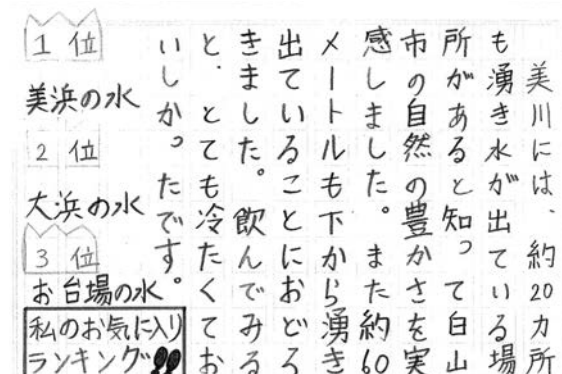 美川には、約20カ所
も湧き水が出ている場
所があると知って白山
市の自然の豊かさを実
感しました。また約60
メートルも下から湧き
出ていることにおどろ
きました。飲んでみる
と、とても冷たくてお
いしかったです。
1位
美浜の水
2位
大浜の水
3位
お台場の水
私のお気に入り
ランキング!!